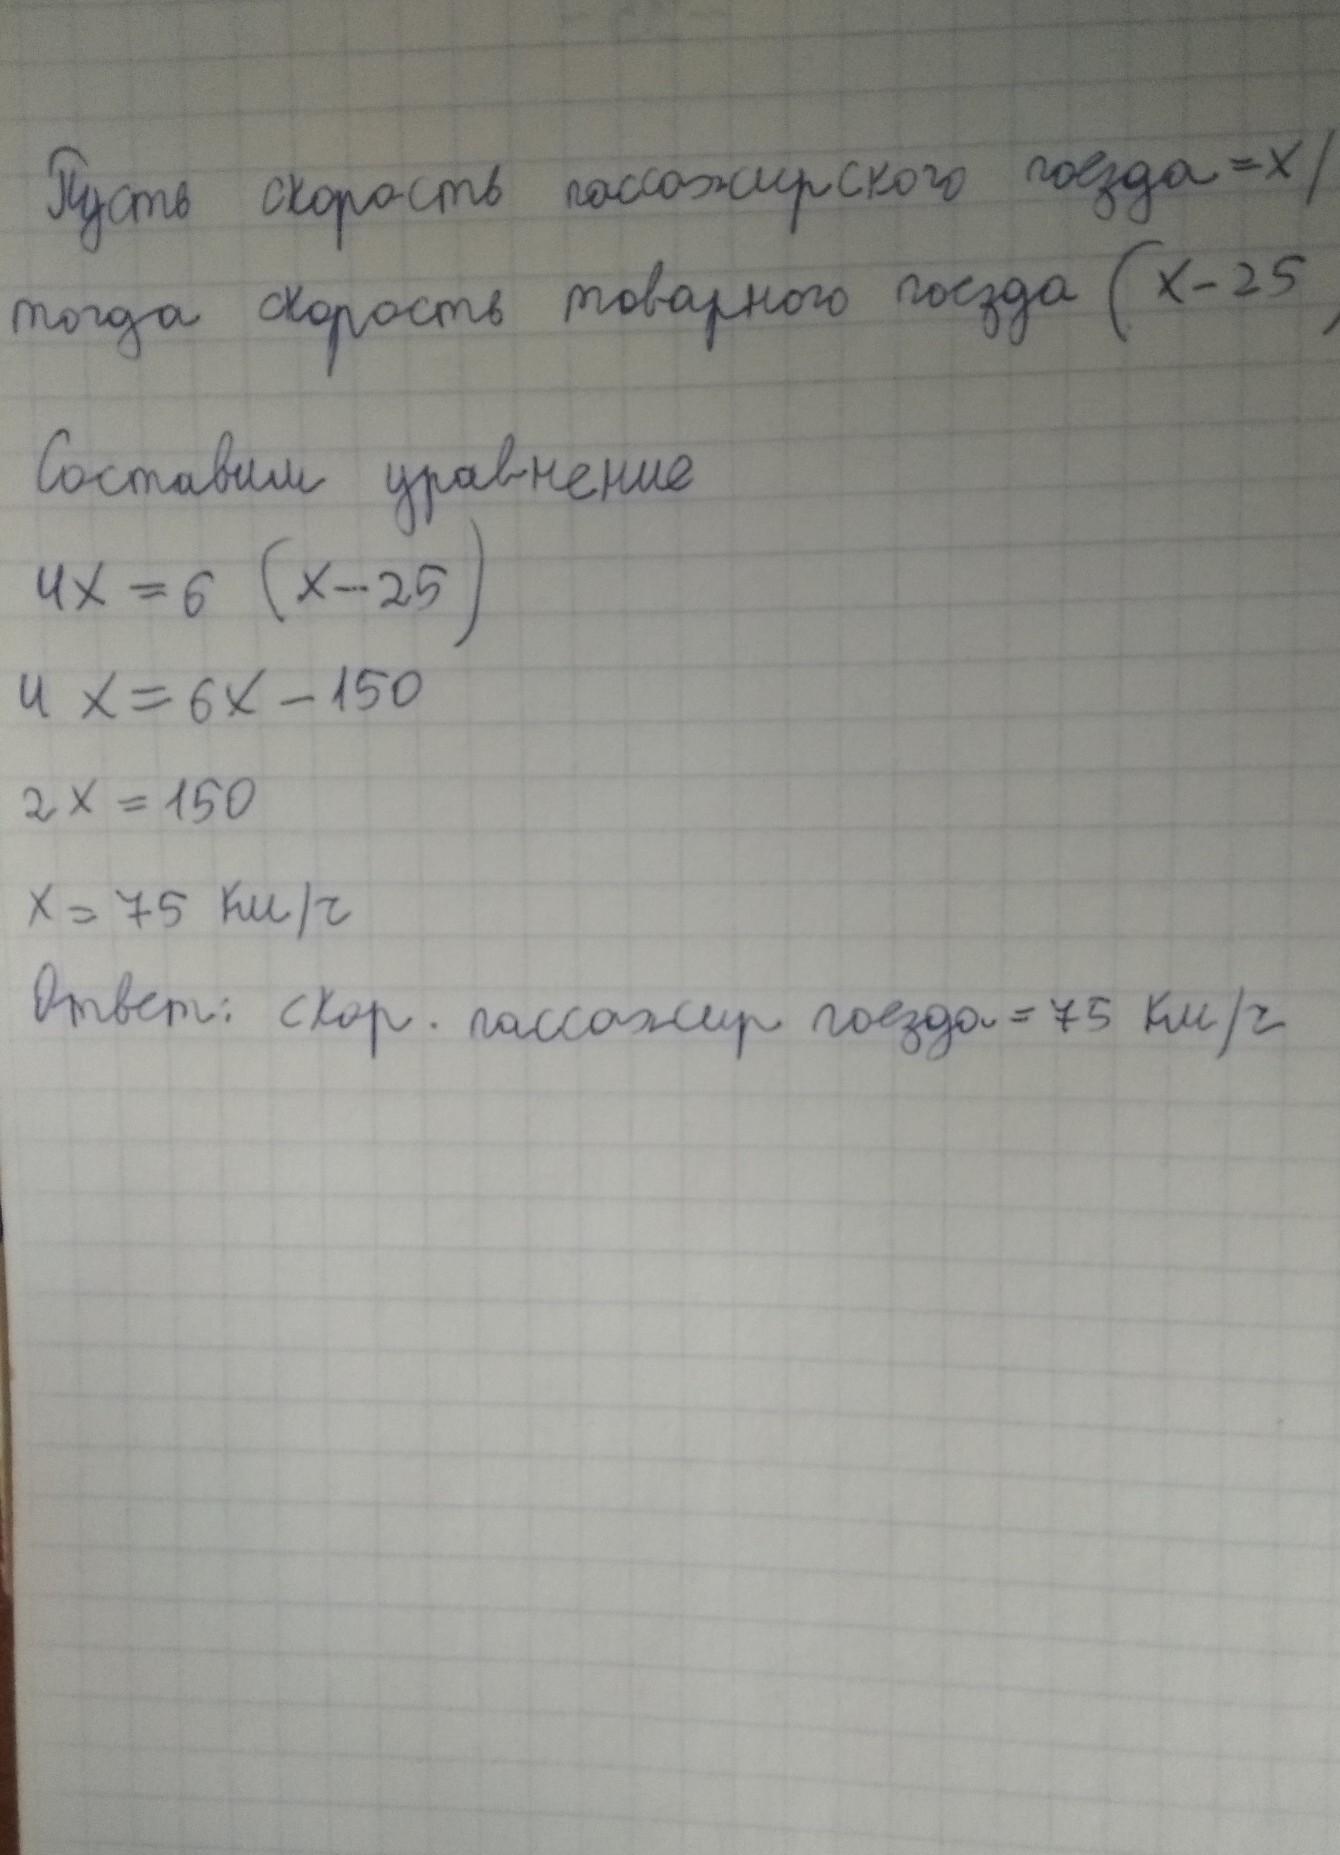 Пусть скорость пассажирского поезда = х /
тогда скорость товарного поезда (х - 25)
Составим уравнение
4х = 6 (х - 25)
4 х = 6х - 150
2х = 150
х = 75 км/ч
Ответ: скор. пассажир поезда = 75 км/ч